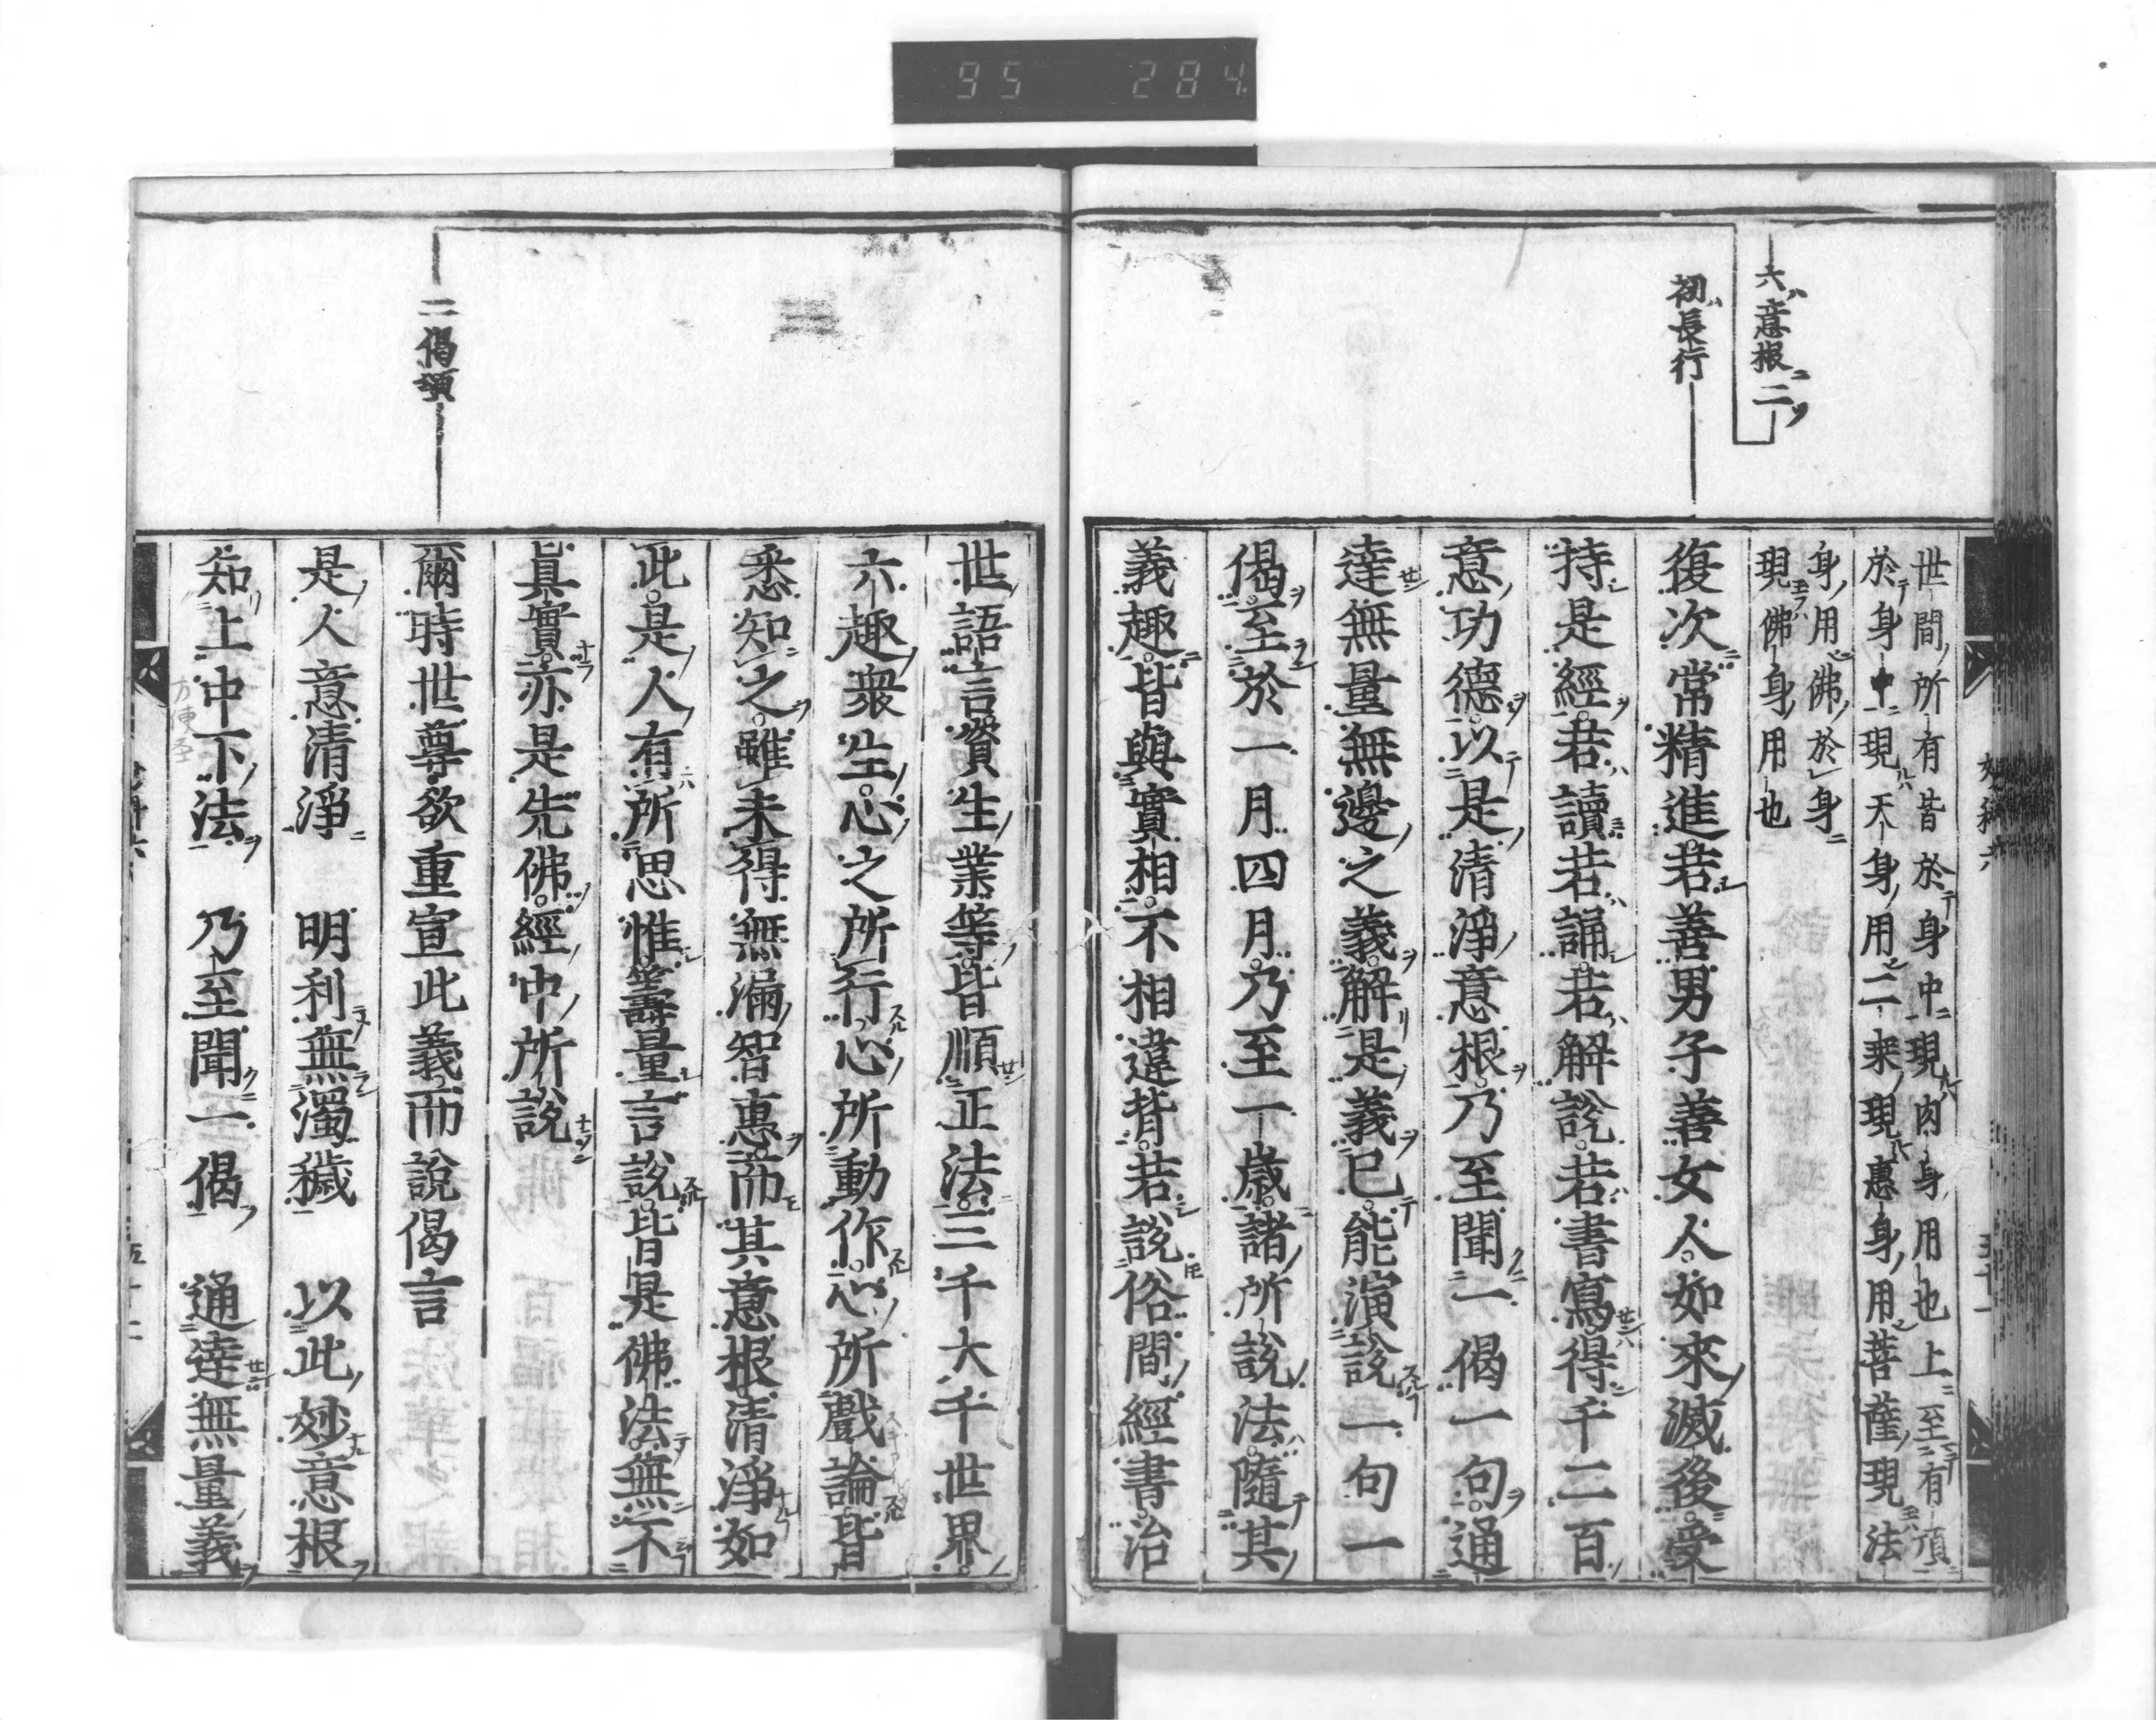 95 284
六意根二
初長行
世間所有皆於身中現肉身用也上至有頂
於身中現天身用二乘現惠身用菩薩現法
身用佛於身
現佛身用也
復次常精進若善男子善女人如來滅後受
持是經若讀若誦若解說若書寫得千二百
意功德以是清淨意根乃至聞一偈一句通
達無量無邊之義解是義已能演說一句一
偈至於一月四月乃至一歲諸所說法隨其
義趣皆與實相不相違背若說俗間經書治
世語言資生業等皆順正法三千大千世界
六趣衆生心之所行心所動作心所戲論皆
悉知之雖未得無漏智惠而其意根清淨如
此是人有所思惟籌量言說皆是佛法無不
眞實亦是先佛經中所說
二偈頌
爾時世尊欲重宣此義而說偈言
是人意清淨　明利無濁穢　以此妙意根
知上中下法　乃至聞一偈　通達無量義